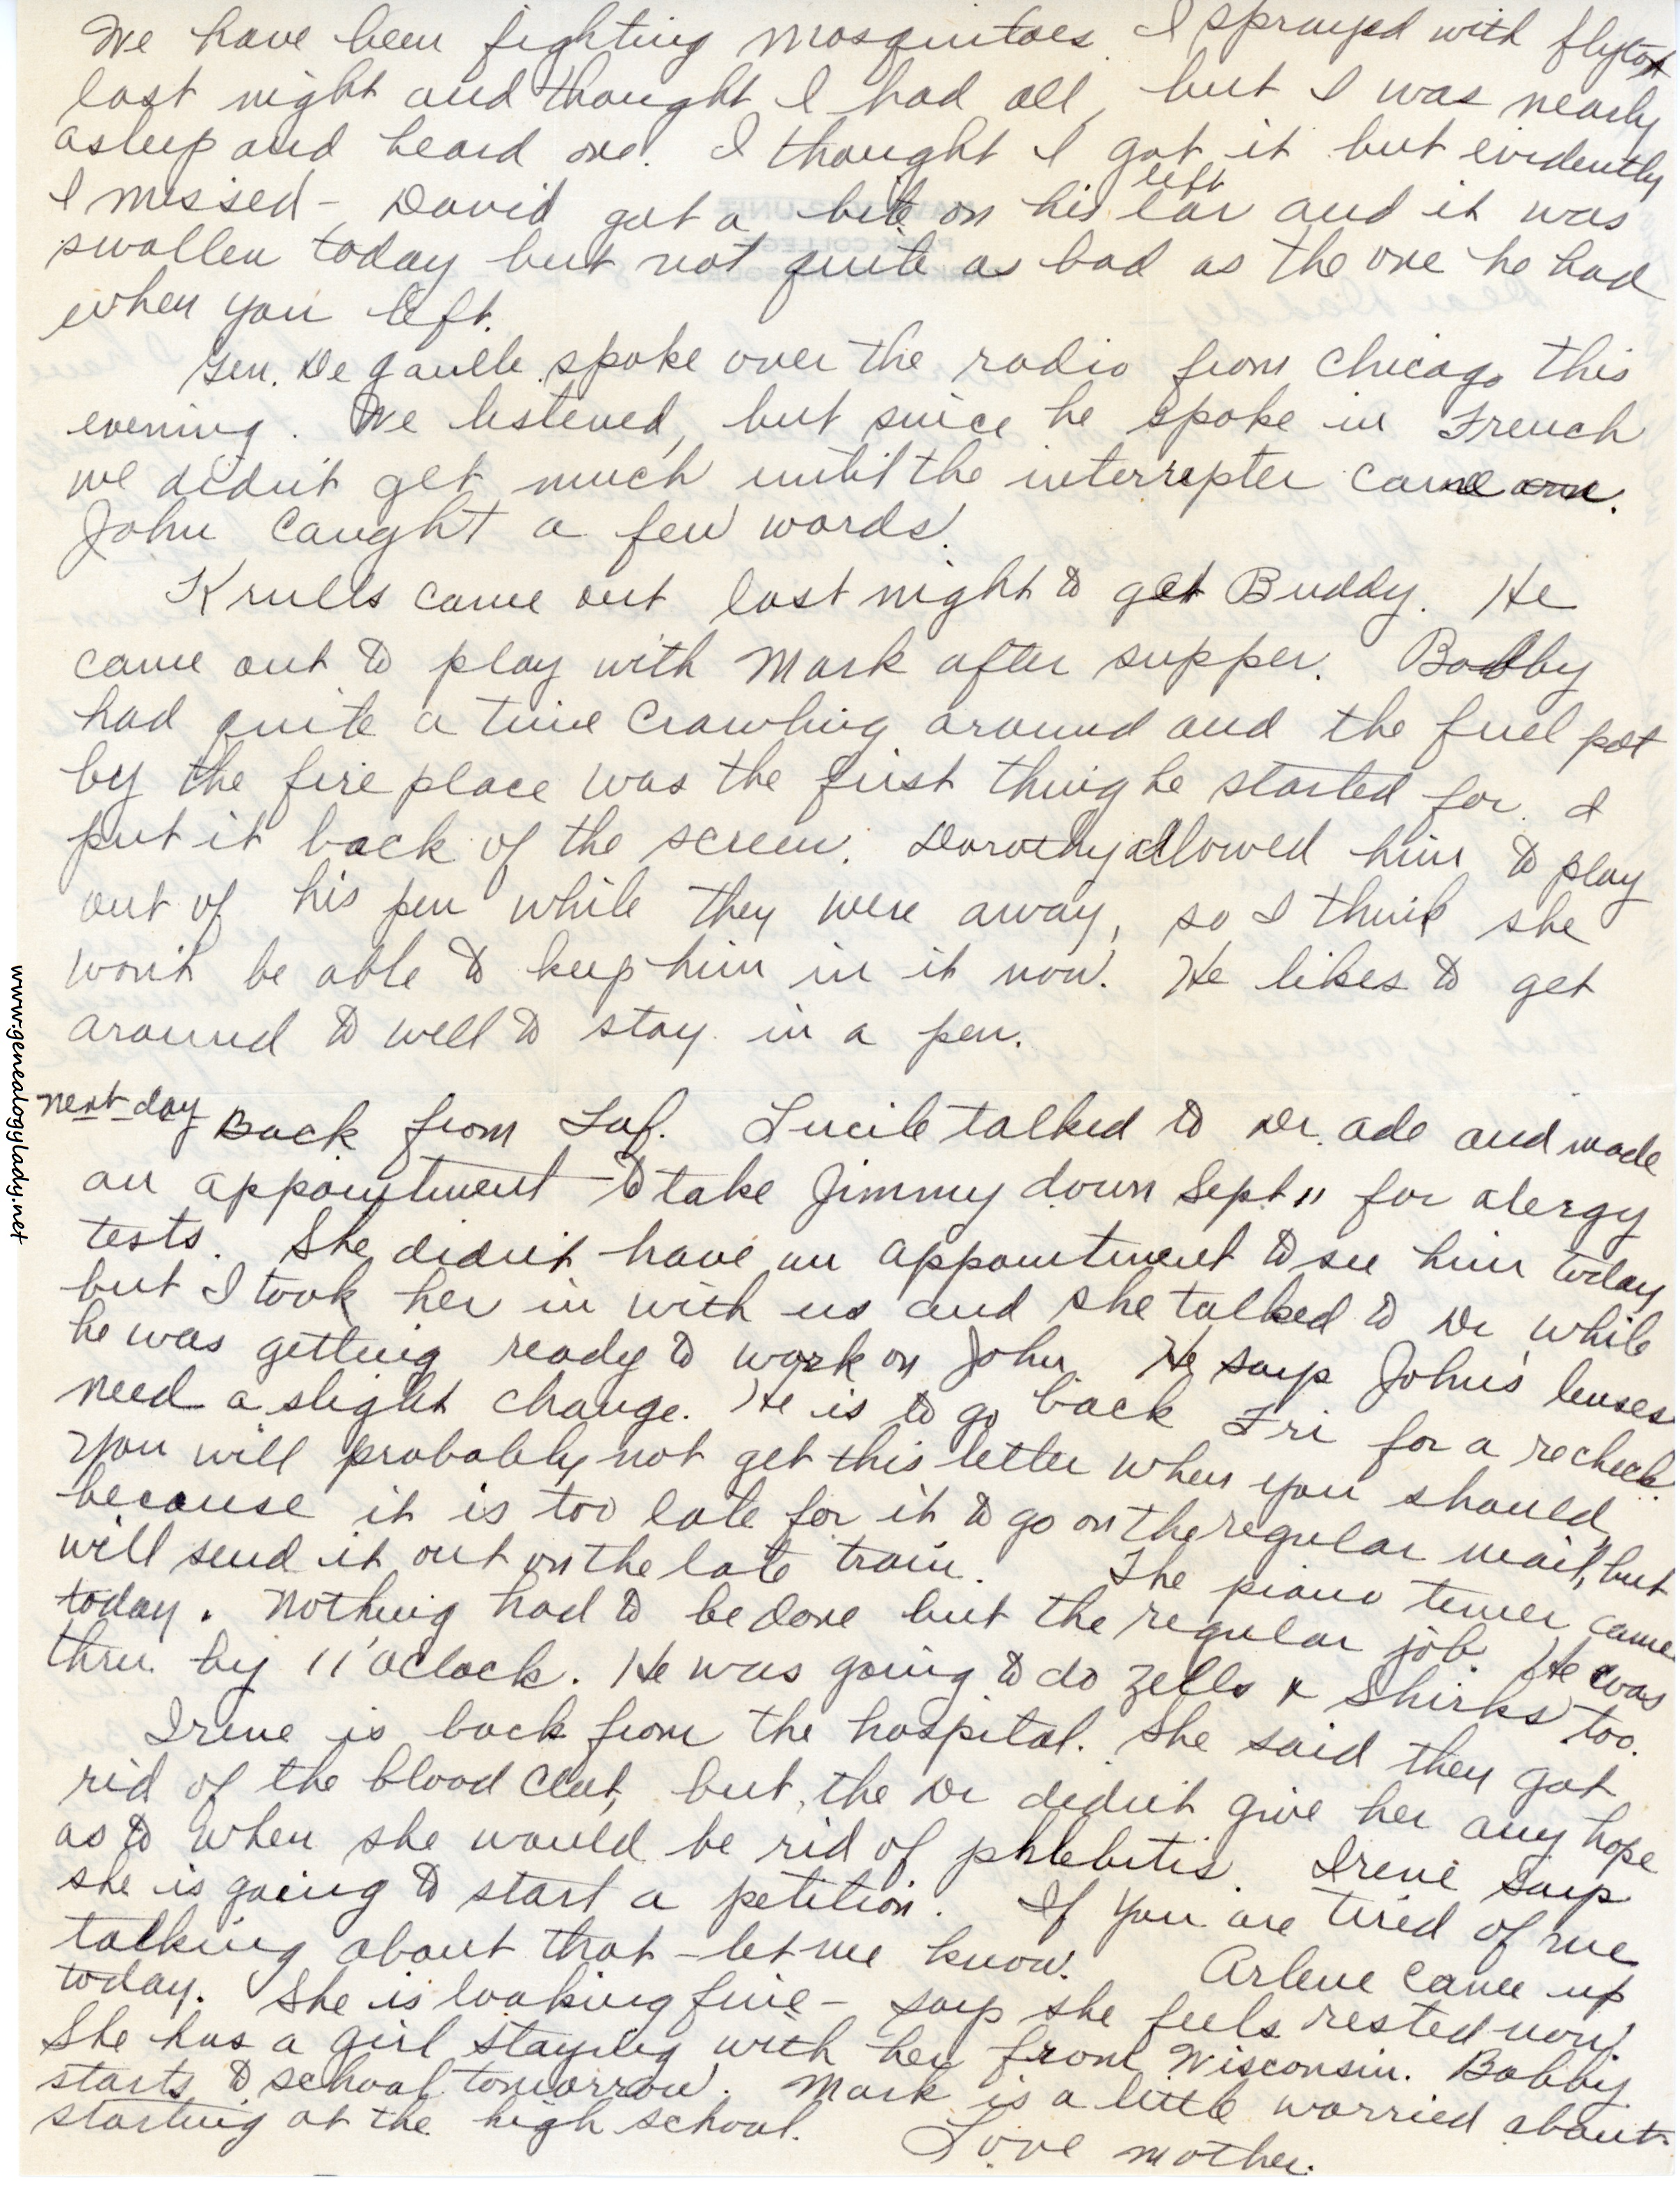 We have been fighting mosquitoes. I sprayed with flytox
last night and thought I had all, but I was nearly
asleep and heard one. I thought I got it but evidently
I missed – David got a bite on his left ear and it was
swollen today but not quite as bad as the one he had
when you left.
Gen. De Gaulle spoke over the radio from Chicago this
evening. We listened, but since he spoke in French
we didn't get much until the interrepter came on.
John caught a few words.
Krulls came out last night to get Buddy. He
came out to play with Mark after supper. Bobby
had quite a time crawling around and the fuel pot
by the fire place was the first thing he started for. I
put it back of the screen. Dorothy allowed him to play
out of his pen while they were away, so I think she
won't be able to keep him in it now. He likes to get
around to well to stay in a pen.
next day Back from Laf. Lucile talked to Dr. Ade and made
an appointment to take Jimmy down Sept 11 for alergy
tests. She didn't have an appointment to see him today
but I took her in with us and she talked to Dr while
he was getting ready to work on John. He says John's lenses
need a slight change. He is to go back Fri for a recheck.
You will probably not get this letter when you should,
because it is too late for it to go on the regular mail, but
will send it out on the late train. The piano tuner came
today. Nothing had to be done but the regular job. He was
thru by 11 o'clock. He was going to do Zells & Shirks too.
Irene is back from the hospital. She said they got
rid of the blood clut, but the Dr didn't give her any hope
as to when she would be rid of phlebitis. Irene says
she is going to start a petition. If you are tired of me
talking about that – let me know. Arlene came up
today. She is looking fine – says she feels rested now.
She has a girl staying with her from Wisconsin. Bobby
starts to school tomorrow. Mark is a little worried about
starting at the high school.
Love mother.
www.genealogylady.net